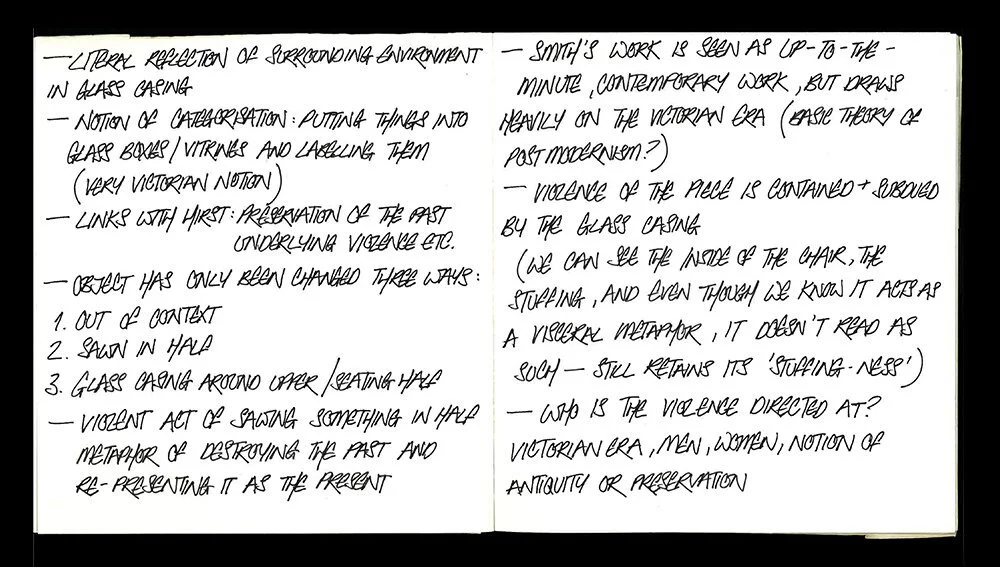 — LITERAL REFLECTION OF SURROUNDING ENVIRONMENT
IN GLASS CASING
— NOTION OF CATEGORISATION: PUTTING THINGS INTO
GLASS BOXES/VITRINES AND LABELLING THEM
(VERY VICTORIAN NOTION)
— LINKS WITH HIRST: PRESERVATION OF THE PAST
UNDERLYING VIOLENCE ETC.
— OBJECT HAS ONLY BEEN CHANGED THREE WAYS:
1. OUT OF CONTEXT
2. SAWN IN HALF
3. GLASS CASING AROUND UPPER/SEATING HALF
— VIOLENT ACT OF SAWING SOMETHING IN HALF
METAPHOR OF DESTROYING THE PAST AND
RE-PRESENTING IT AS THE PRESENT
— SMITH'S WORK IS SEEN AS UP-TO-THE-
MINUTE, CONTEMPORARY WORK, BUT DRAWS
HEAVILY ON THE VICTORIAN ERA (BASIC THEORY OF
POST MODERNISM?)
— VIOLENCE OF THE PIECE IS CONTAINED + SUBDUED
BY THE GLASS CASING
(WE CAN SEE THE INSIDE OF THE CHAIR, THE
STUFFING, AND EVEN THOUGH WE KNOW IT ACTS AS
A VISCERAL METAPHOR, IT DOESN'T READ AS
SUCH — STILL RETAINS ITS 'STUFFING-NESS')
— WHO IS THE VIOLENCE DIRECTED AT?
VICTORIAN ERA, MEN, WOMEN, NOTION OF
ANTIQUITY OR PRESERVATION